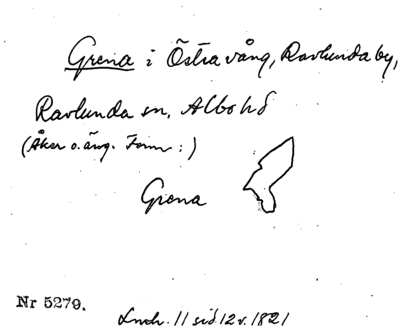 Grena i Östra vång, Ravlunda by,
Ravlunda sn, Albo hd
(Åker o. äng. Form:)
Grena
Nr 5279.
11 sid 12 v. 1821